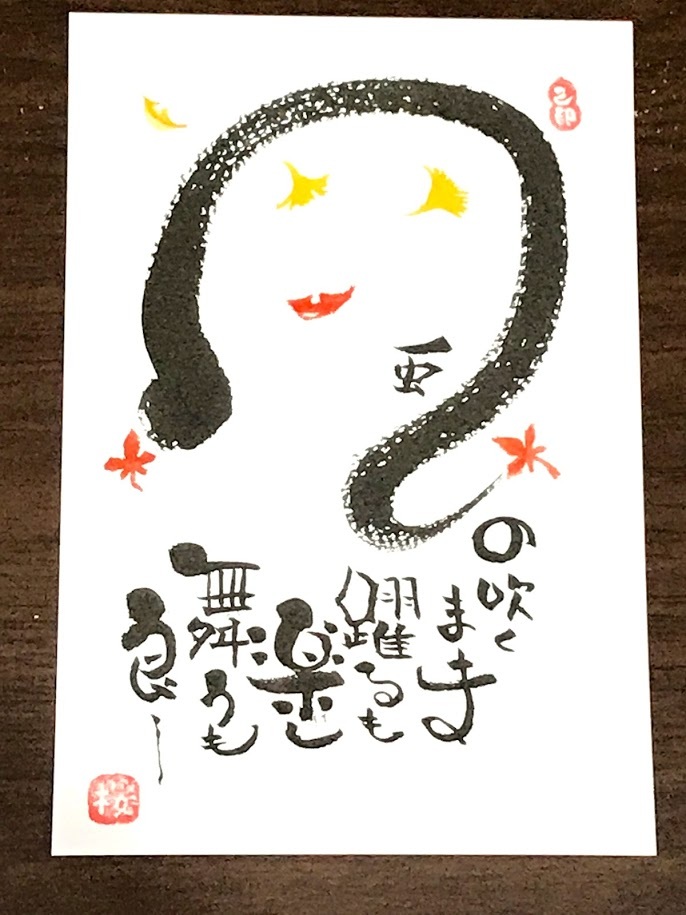 風
の吹く
まま
躍るも
楽し
舞うも
良し
桜